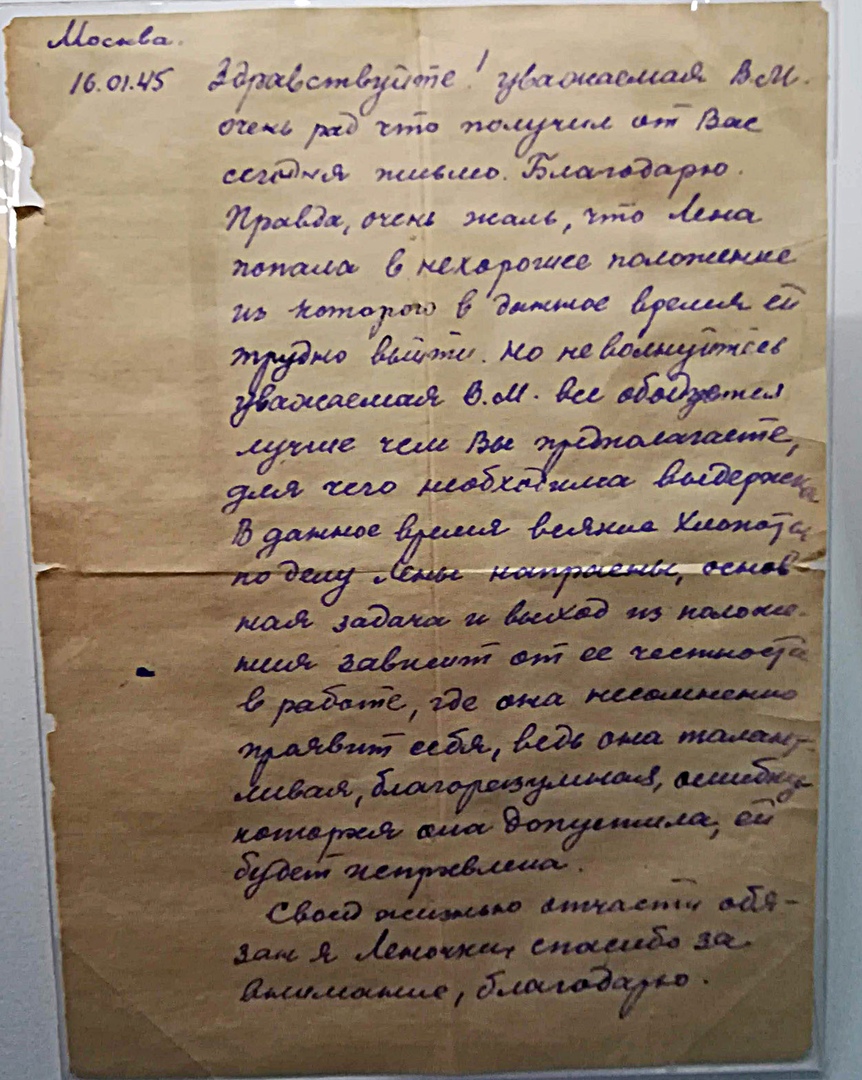 Москва.
16.01.45 Здравствуйте! уважаемая В.М.
очень рад что получил от Вас
сегодня письмо. Благодарю.
Правда, очень жаль, что Лена
попала в нехорошее положение
из которого в данное время ей
трудно выйти. Но не волнуйтесь
уважаемая В.М. все обойдется
лучше чем Вы предполагаете,
для чего необходима выдержка
В данное время всякие Хлопоты
по делу Лены напрасны, основ-
ная задача и выход из положе-
ния зависит от ее честности
в работе, где она несомненно
проявит себя, ведь она талант-
ливая, благоразумная, ошибку
которая она допустила, ей
будет исправлена.
Своей жизнью отчасти обя-
зан я Леночки, спасибо за
внимание, благодарю.